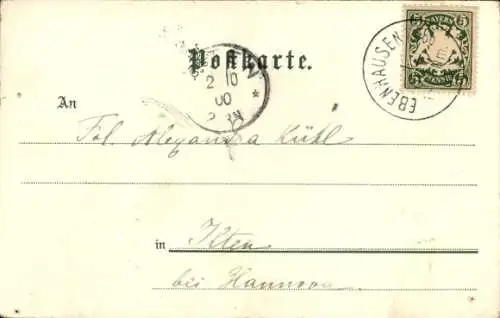 BAYERN
5 5
PFENNIG
EBENHAUSEN
Postkarte.
2 10
00
An
Frl. Alexandra Kühl
in Ilten
bei Hannover